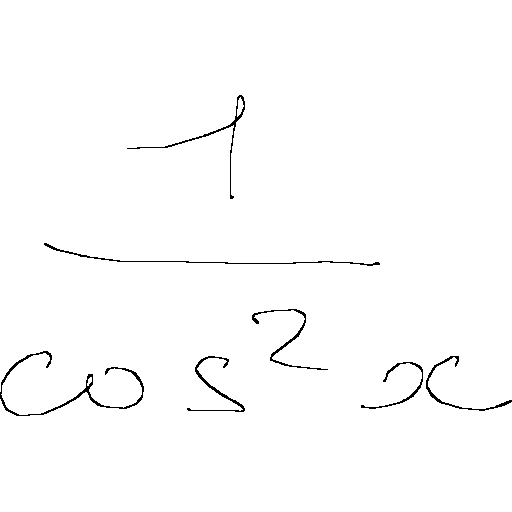 \frac{1}{\cos^2 x}